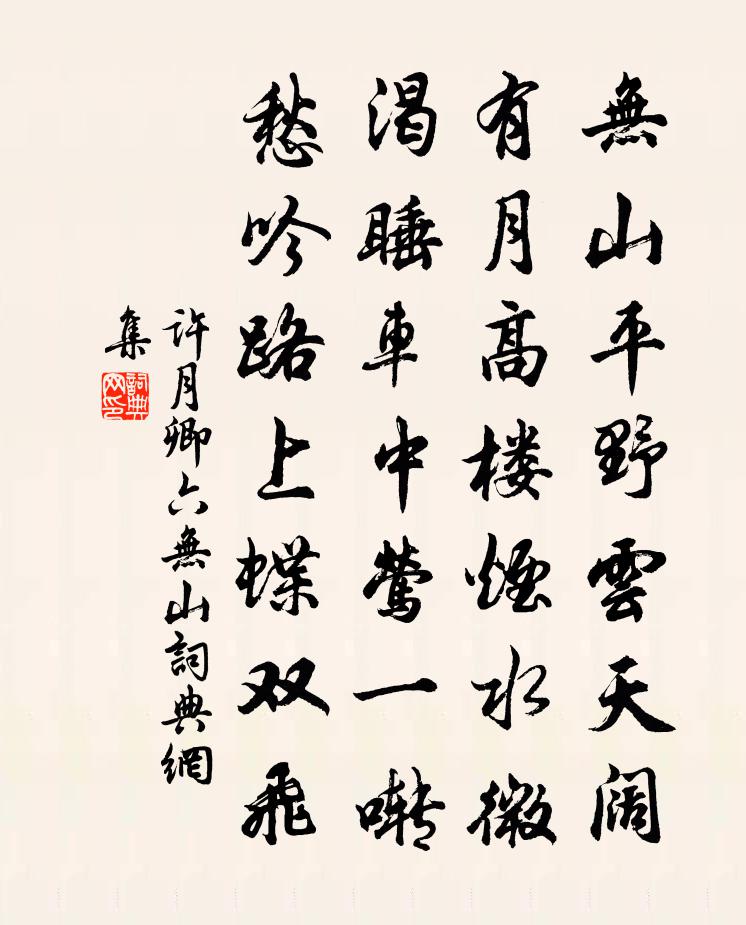 無山平野雲天阔
有月高楼煙水微
渴睡車中鶯一啭
愁吟路上蝶双飛
許月卿六無山詞典網
集
詞典
网印